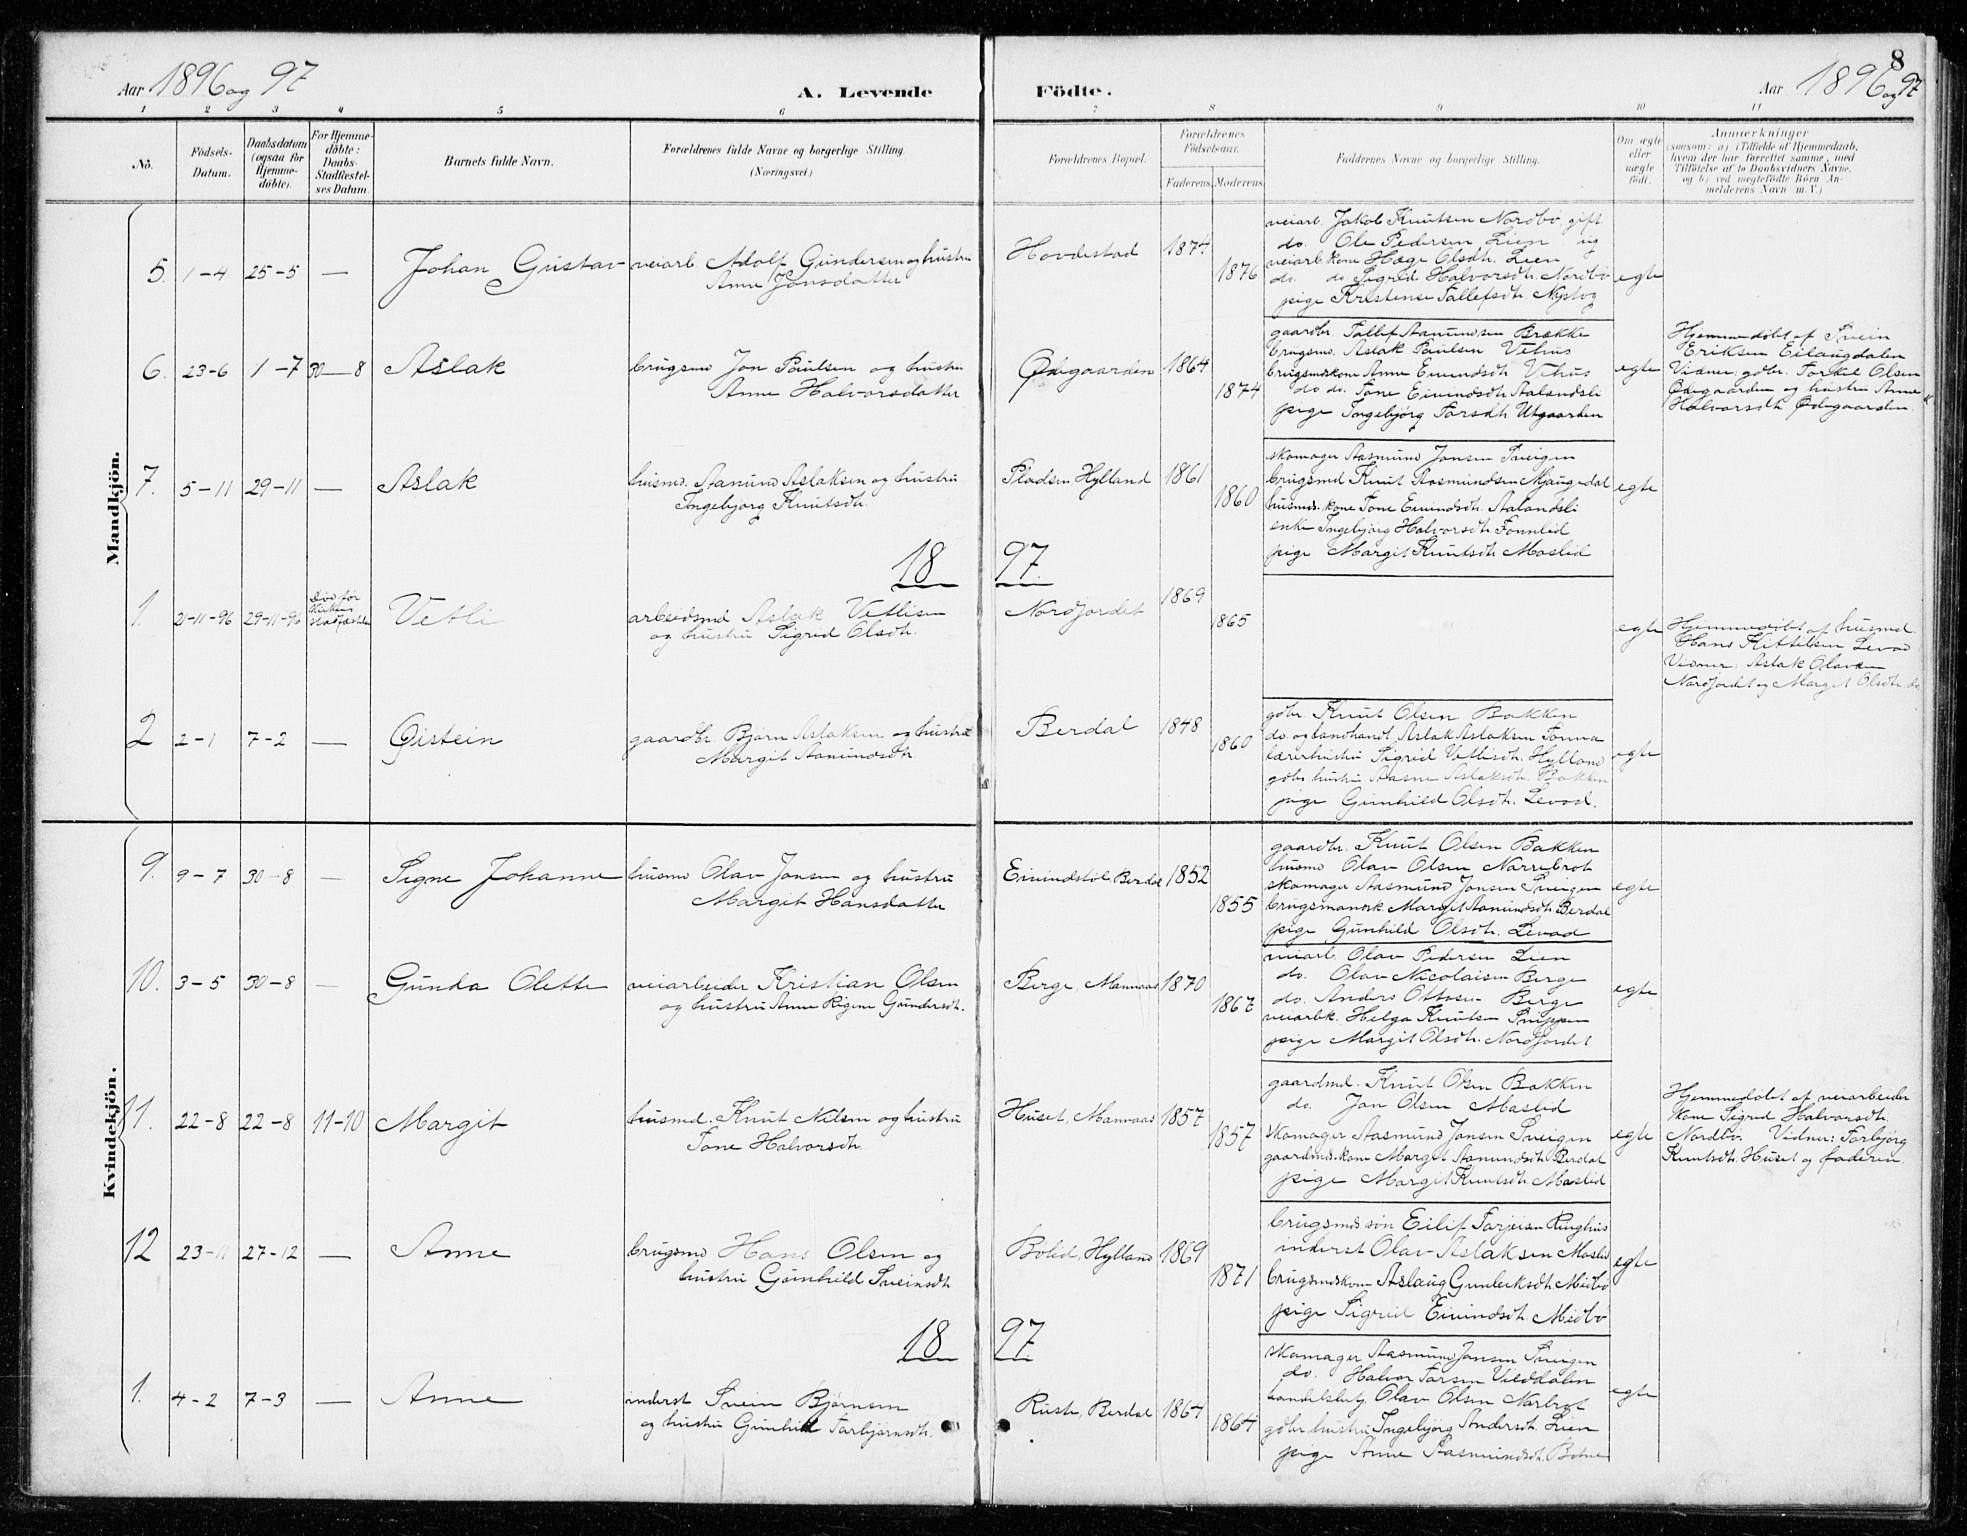 8
Aar 1896 og 97
A. Levende Födte.
Aar 1896 og 97
1 2 3 4 5 6 7 8 9 10 11
No.
Födsels-Datum.
Daabsdatum (ogsaa for Hjemme-döbte).
For Hjemme-döbte: Daabs-Stadfæstel-ses Datum.
Barnets fulde Navn.
Forældrenes fulde Navne og borgerlige Stilling.
(Næringsvei.)
Forældrenes Bopæl.
Forældrenes Födselsaar.
Faderens. Moderens.
Faddernes Navne og borgerlige Stilling.
Om ægte eller uægte födt.
Anmærkninger
(saasom: a) i Tilfælde af Hjemmedaab,
hvem der har forrettet samme, med
Tilföielse af to Daabsvidners Navne,
og b) ved uægtefödte Börn An-
melderens Navn m. V.)
Mandkjön.
5. 1-4 25-5 — Johan Gustav
veiarb. Adolf Gundersen og hustru
Anne Jonsdatter
Hovdestad 1874 1876
veiarb. Jakob Knutsen Nordbø gift
do. Ole Pedersen Lien ug
veiarb.kone Hæge Olsdtr. Lien
do. do Sigrid Halvorsdtr. Nordbø
pige Kristense Tallefsdtr. Nystog
egte
6. 23-6 1-7 30-8 Aslak
brugsmd Jon Paulsen og hustru
Anne Halvorsdatter
Ødegaarden 1864 1874
gaardbr. Tallef Aanundsen Brække
brugsmd. Aslak Paulsen Vehus
brugsmdskone Anne Eivindsdtr. Vehus
do do. Tone Eivindsdtr. Aalandsli
pige Ingebjørg Tarsdtr. Utgaarden
egte
Hjemmedøbt af Svein
Eriksen Eilaugdalen
Vidner: gdbr. Torkel Olsen
Ødegaarden og hustru Anne
Halvorsdtr. Ødegaarden.
7. 5-11 29-11 — Aslak
husmd. Aanund Aslaksen og hustru
Ingebjørg Knutsdtr.
Pladsen Hylland 1861 1860
skomager Aasmund Jonsen Sveigen
brugsmd Knut Aasmundsen Mjaugedal
husmds.kone Tone Eivindsdtr. Aalandsli
enke Ingebjørg Halvorsdtr. Fonnlid
pige Margit Knutsdtr. Moslid
egte
18 97.
1. 21-11-96 29-11-96 Død før Kirkens stadfæstelse Vetli
arbeidsmd Aslak Vetlisen
og hustru Sigrid Olsdtr.
Nordjordet 1869 1865
egte
Hjemmedøbt af husmd.
Hans Kittilsen Levad
Vidner: Aslak Olavsen
Nordjordet og Margit Olsdtr. do
2 2-1 7-2 — Øistein
gaardbr. Bjørn Aslaksen og hustru
Margit Aanundsdtr
Berdal 1848 1860
gdbr. Knut Olsen Bakken
do og landhandl. Aslak Aslaksen
lærerhustru Sigrid Vetlisdtr. Hylland
gdbr. hustru Aasne Aslaksdtr. Bakken
pige Gunhild Olsdtr. Levad.
egte
Kvindekjön.
9. 9-7 30-8 — Signe Johanne
husmd Olav Jonsen og hustru
Margit Hansdatter
Eivindstøl Berdal 1852 1855
gaardbr. Knut Olsen Bakken
husmd Olav Olsen Narrebrot
skomager Aasmund Jonsen Sveigen
brugsmansk. Margit Aanundsdtr. Berdal
pige Gunhild Olsdtr. Levad
egte
10. 3-5 30-8 — Gunda Olette
veiarbeider Kristian Olsen
og hustru Anne Rigene Gundersdtr.
Berge, Mannaas 1870 1867
veiarb. Olav Pedersen Lien
do. Olav Nicolaisen Berge
do. Anders Ottosen Berge
veiarbk. Helga Knutsen Snippen
pige Margit Olsdtr. Nordjordet
egte
11. 22-8 22-8 11-10 Margit
husmd. Knut Nilsen og hustru
Tone Halvorsdtr.
Huset, Mannaas 1857 1857
gaardmd. Knut Olsen Bakken
do. Jon Olsen Moslid
skomager Aasmund Jonsen Sveigen
gaardmds.kone Margit Aanundsdtr. Berdal
pige Margit Knutsdtr. Moslid
egte
Hjemmedøbt af veiarbeider
kone Sigrid Halvorsdtr.
Nordbø. Vidner: Torbjørg
Knutsdtr. Huset og faderen.
12 23-11 27-12 — Anne
brugsmd Hans Olsen og
hustru Gunhild Sveinsdtr
Bolid, Hylland 1869 1871
brugsmds søn Eilif Tarjeisen Ringhus
inderst Olav Aslaksen Moslid
brugsmdskone Aslaug Gunleiksdtr. Midbø
pige Sigrid Eivindsdtr. Midbø
egte
18 97
1. 4-2 7-3 — Anne
inderst Svein Bjørnsen
og hustru Gunhild Tarbjørnsdtr.
Ruste, Berdal 1864 1864
skomager Aasmund Jonsen Sveigen
do. Halvor Tarsen Vieddalen
handelsbetj. Olav Olsen Narbrot
gdbr. hustru Ingebjørg Andersdtr. Lien
pige Anne Aasmundsdtr. Botne
egte